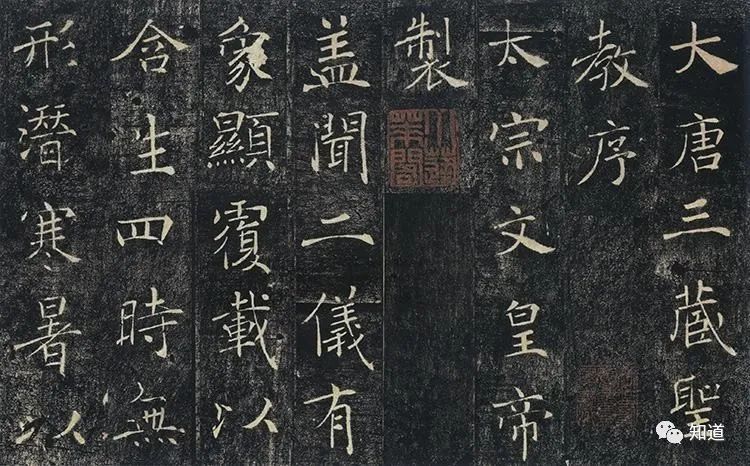 大唐三藏聖
教序
太宗文皇帝
製
小蓬萊閣
盖聞二儀有
象顯覆載以
含生四時無
形潛寒暑以
知道